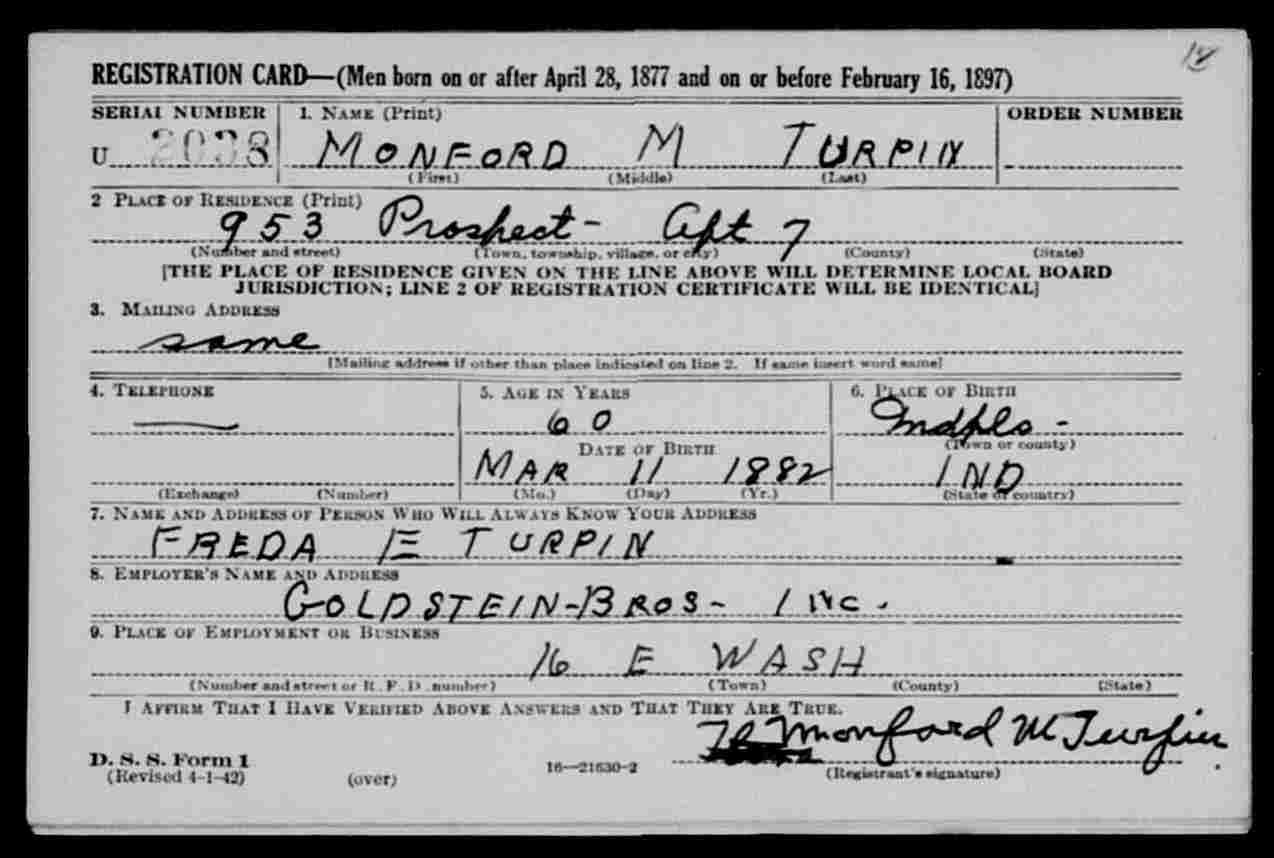 REGISTRATION CARD—(Men born on or after April 28, 1877 and on or before February 16, 1897)
SERIAL NUMBER 1. NAME (Print) ORDER NUMBER
U 2038 MONFORD M TURPIN
(First) (Middle) (Last)
2 PLACE OF RESIDENCE (Print)
953 Prospect - Apt 7
(Number and street) (Town, township, village, or city) (County) (State)
[THE PLACE OF RESIDENCE GIVEN ON THE LINE ABOVE WILL DETERMINE LOCAL BOARD
JURISDICTION; LINE 2 OF REGISTRATION CERTIFICATE WILL BE IDENTICAL]
3. MAILING ADDRESS
same
[Mailing address if other than place indicated on line 2. If same insert word same]
4. TELEPHONE 5. AGE IN YEARS 6. PLACE OF BIRTH
60 Indpls -
DATE OF BIRTH (Town or county)
MAR 11 1882 IND
(Exchange) (Number) (Mo.) (Day) (Yr.) (State or country)
7. NAME AND ADDRESS OF PERSON WHO WILL ALWAYS KNOW YOUR ADDRESS
FREDA E TURPIN
8. EMPLOYER'S NAME AND ADDRESS
GOLDSTEIN-BROS- INC.
9. PLACE OF EMPLOYMENT OR BUSINESS
16 E WASH
(Number and street or R. F. D. number) (Town) (County) (State)
I AFFIRM THAT I HAVE VERIFIED ABOVE ANSWERS AND THAT THEY ARE TRUE.
Monford M Turpin
D. S. S. Form 1
(Revised 4-1-42) (over) 16—21630-2 (Registrant's signature)